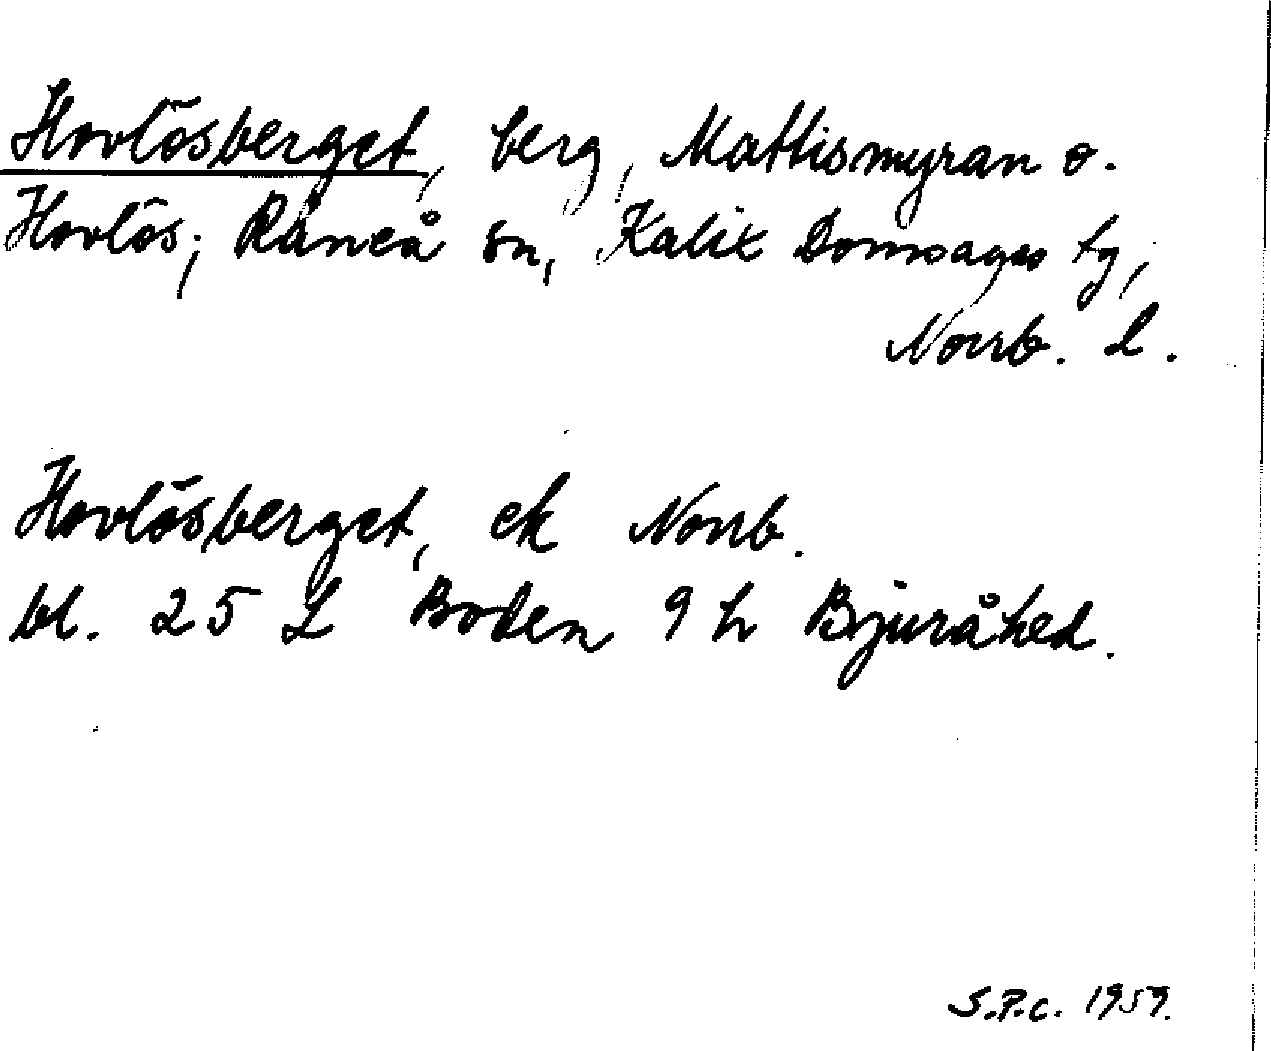 Hovlösberget, berg, Mattismyran o.
Hovlös; Råneå sn, Kalix Domsagas tg,
Norrb. l.
Hovlösberget, ek Norrb.
bl. 25 L Boden 9 h Bjuråhed.
S.P.c. 1959.